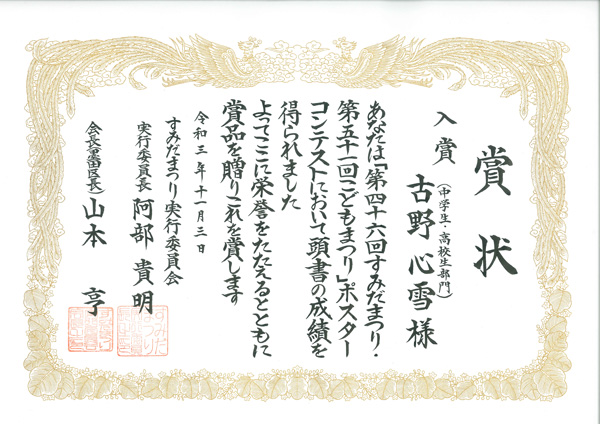 賞状
入賞
(中学生・高校生部門)
古野心雪様
あなたは「第四十六回すみだまつり・
第五十一回こどもまつり」ポスター
コンテストにおいて頭書の成績を
得られました
よってここに栄誉をたたえるとともに
賞品を贈りこれを賞します
令和三年十一月三日
すみだまつり実行委員会
実行委員長 阿部貴明
会長(墨田区長) 山本亨